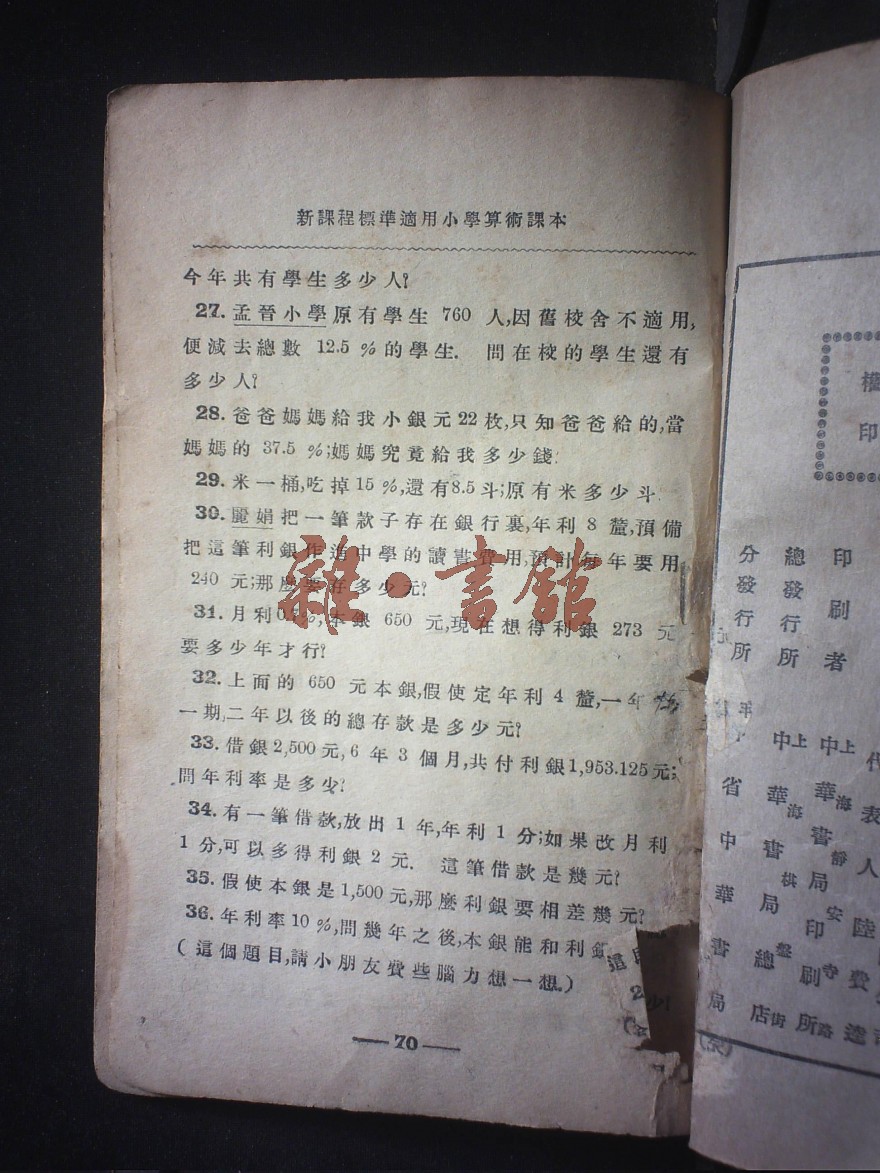 新課程標準適用小學算術課本
今年共有學生多少人?
27. 孟晉小學原有學生 760 人,因舊校舍不適用,
便減去總數 12.5 %的學生. 問在校的學生還有
多少人?
28. 爸爸媽媽給我小銀元22枚,只知爸爸給的,當
媽媽的 37.5 %;媽媽究竟給我多少錢?
29. 米一桶,吃掉15%,還有8.5斗;原有米多少斗.
30. 麗娟把一筆款子存在銀行裏,年利 8 釐,預備
把這筆利銀作進中學的讀書費用,預計每年要用
240 元;那麼要存多少元?
31. 月利0.7%,本銀 650 元,現在想得利銀 273 元
要多少年才行?
32. 上面的 650 元本銀,假使定年利 4 釐,一年
一期,二年以後的總存款是多少元?
33. 借銀2,500元,6 年 3 個月,共付利銀1,953.125元;
問年利率是多少?
34. 有一筆借款,放出 1 年,年利 1 分;如果改月利
1 分,可以多得利銀 2 元. 這筆借款是幾元?
35. 假使本銀是1,500元,那麼利銀要相差幾元?
36. 年利率10%,問幾年之後,本銀能和利銀
(這個題目,請小朋友費些腦力想一想.)
— 70 —
雜·書館
權
印
印刷者
總發行所
分發行所
代表人陸費逵
上海靜安寺路
中華書局印刷所
上海棋盤街
中華書局總店
省中華書局